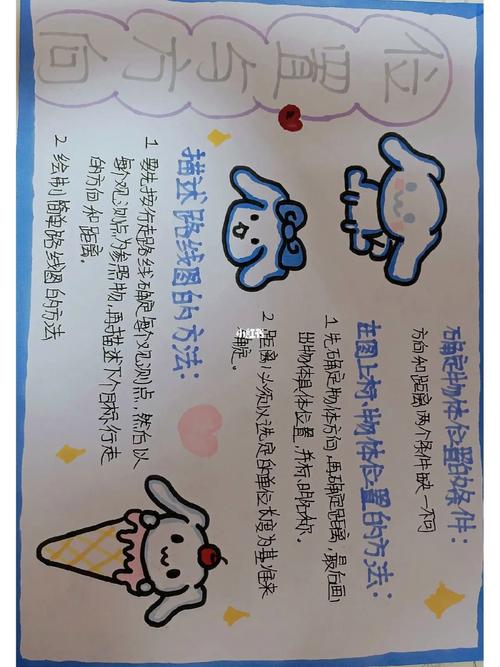 位置与方向
确定物体位置的条件:
方向和距离两个条件缺一不可
在图上标物体位置的方法:
1 先确定物体方向,再确定距离,最后画
出物体具体位置,并标明名称。
2 距离必须以选定的单位长度为基准来
确定。
描述路线图的方法:
1 要先按行走路线确定每个观测点,然后以
每个观测点为参照物,再描述下个目标行走
的方向和距离。
2 绘制简单路线图的方法
小红书